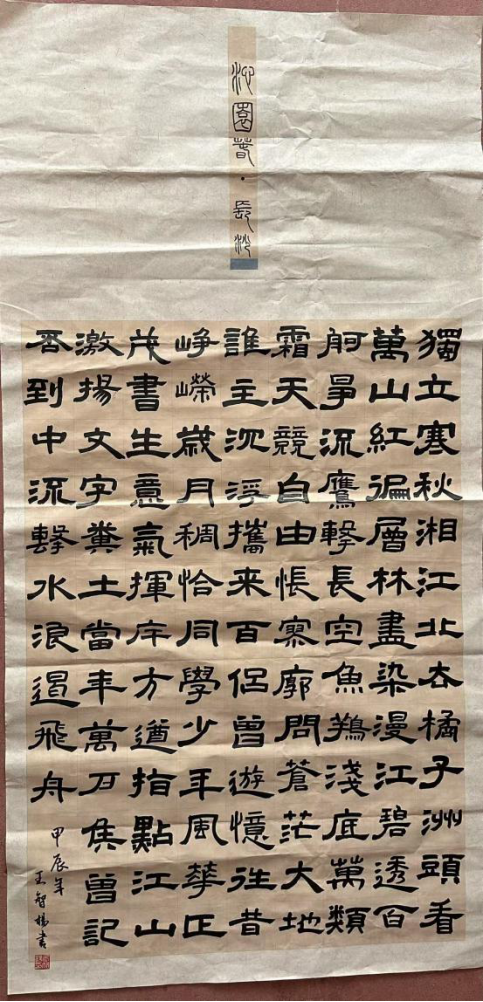 沁園春·長沙
獨立寒秋湘江北去橘子洲頭看
萬山紅徧層林盡染漫江碧透百
舸爭流鷹擊長空魚翔淺底萬類
霜天競自由悵寥廓問蒼茫大地
誰主沉浮攜来百侶曾遊憶往昔
崢嶸歲月稠恰同學少年風華正
茂書生意氣揮斥方遒指點江山
激揚文字糞土當年萬戶侯曾記
否到中流擊水浪遏飛舟
甲辰年
王智楊書